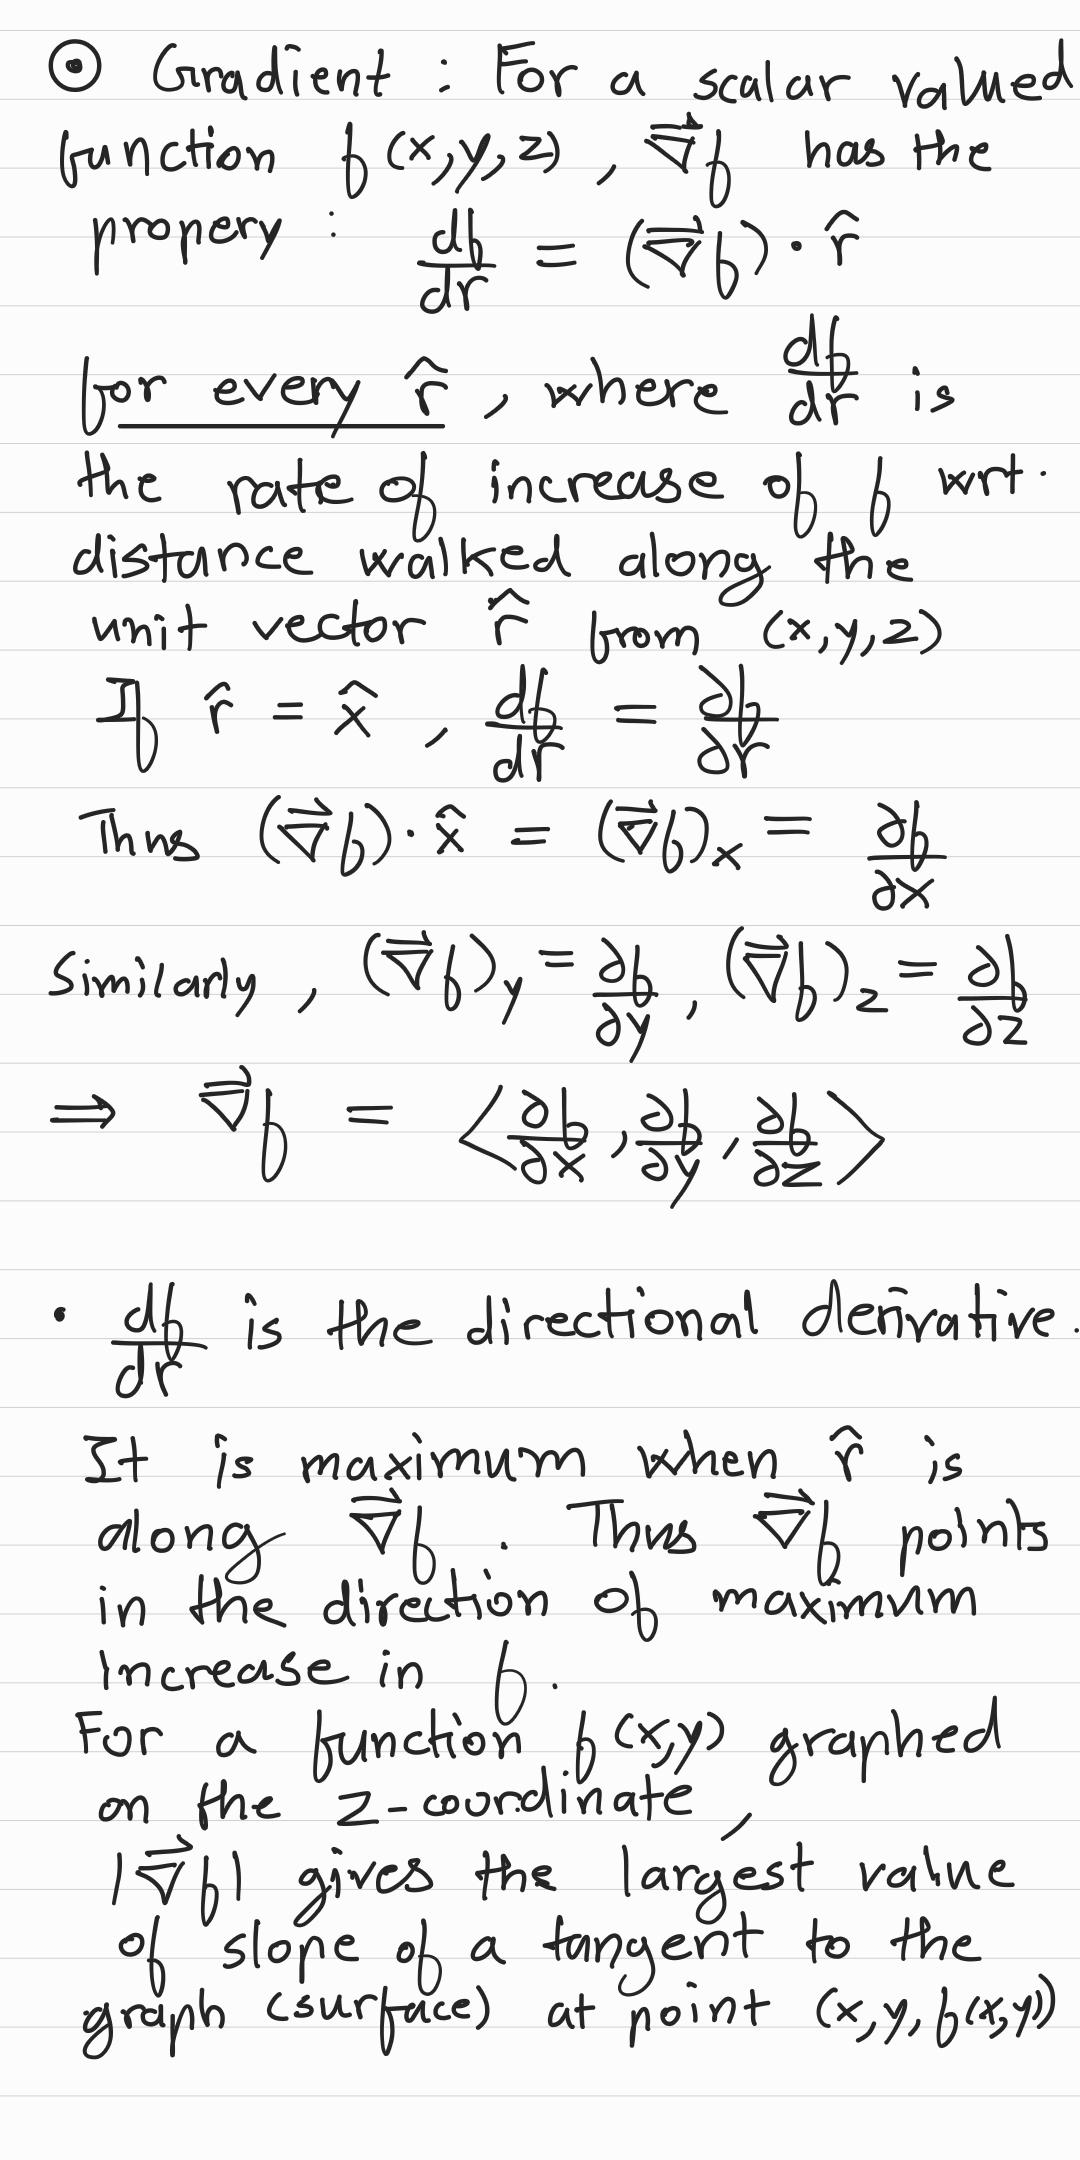 ⊙ Gradient : For a scalar valued
function f(x,y,z) , ∇⃗f has the
propery : df/dr = (∇⃗f) · r̂
for every r̂ , where df/dr is
the rate of increase of f wrt.
distance walked along the
unit vector r̂ from (x,y,z)
If r̂ = x̂ , df/dr = ∂f/∂r
Thus (∇⃗f) · x̂ = (∇⃗f)_x = ∂f/∂x
Similarly , (∇⃗f)_y = ∂f/∂y , (∇⃗f)_z = ∂f/∂z
⇒ ∇⃗f = <∂f/∂x , ∂f/∂y , ∂f/∂z>
· df/dr is the directional derivative.
It is maximum when r̂ is
along ∇⃗f . Thus ∇⃗f points
in the direction of maximum
increase in f .
For a function f(x,y) graphed
on the z-coordinate ,
|∇⃗f| gives the largest value
of slope of a tangent to the
graph (surface) at point (x,y,f(x,y))